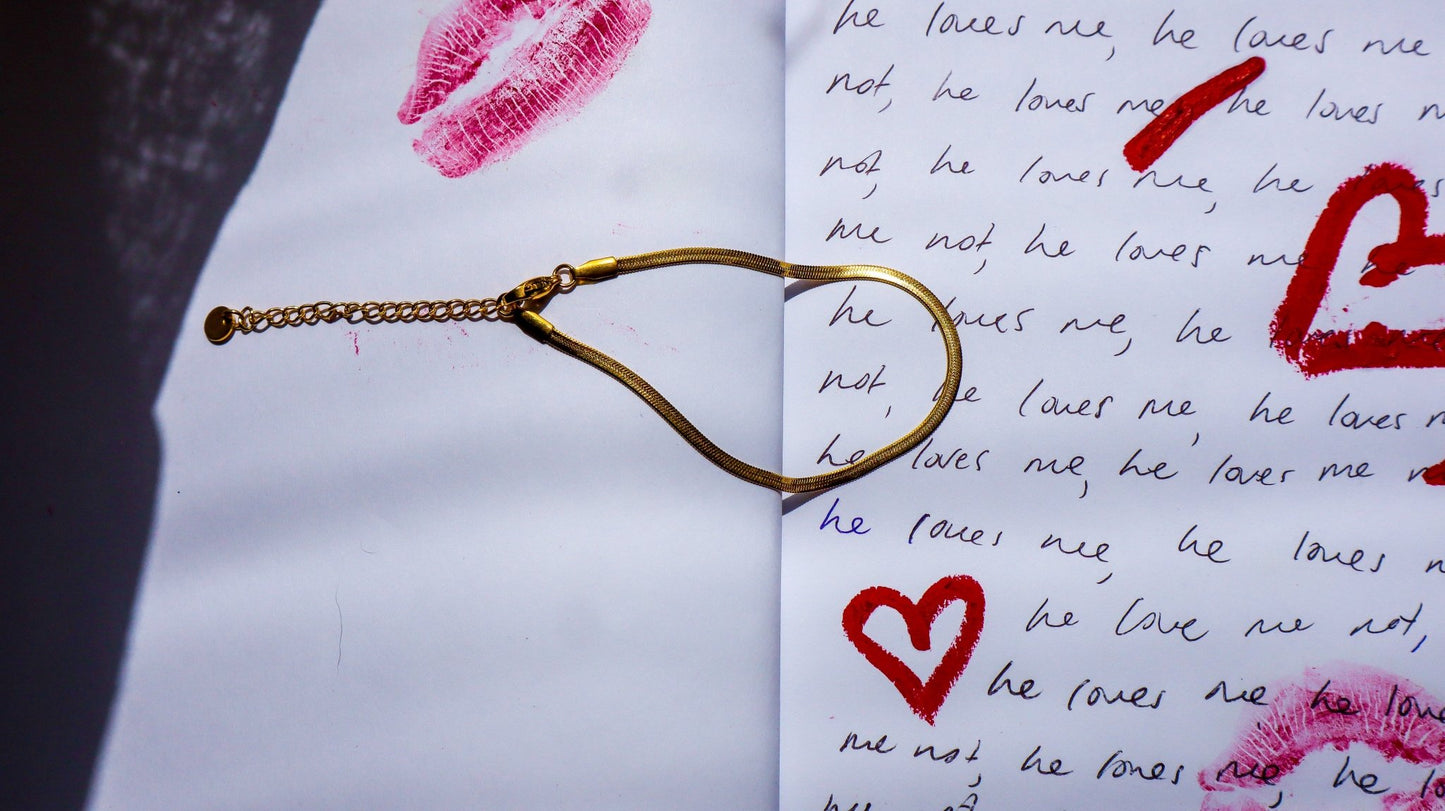 he loves me, he loves me
not, he loves me, he loves
not, he loves me, he
me not, he loves me
he loves me, he
not, he loves me, he loves
he loves me, he loves me
he loves me, he loves
he love me not,
he loves me, he love
me not, he loves me, he